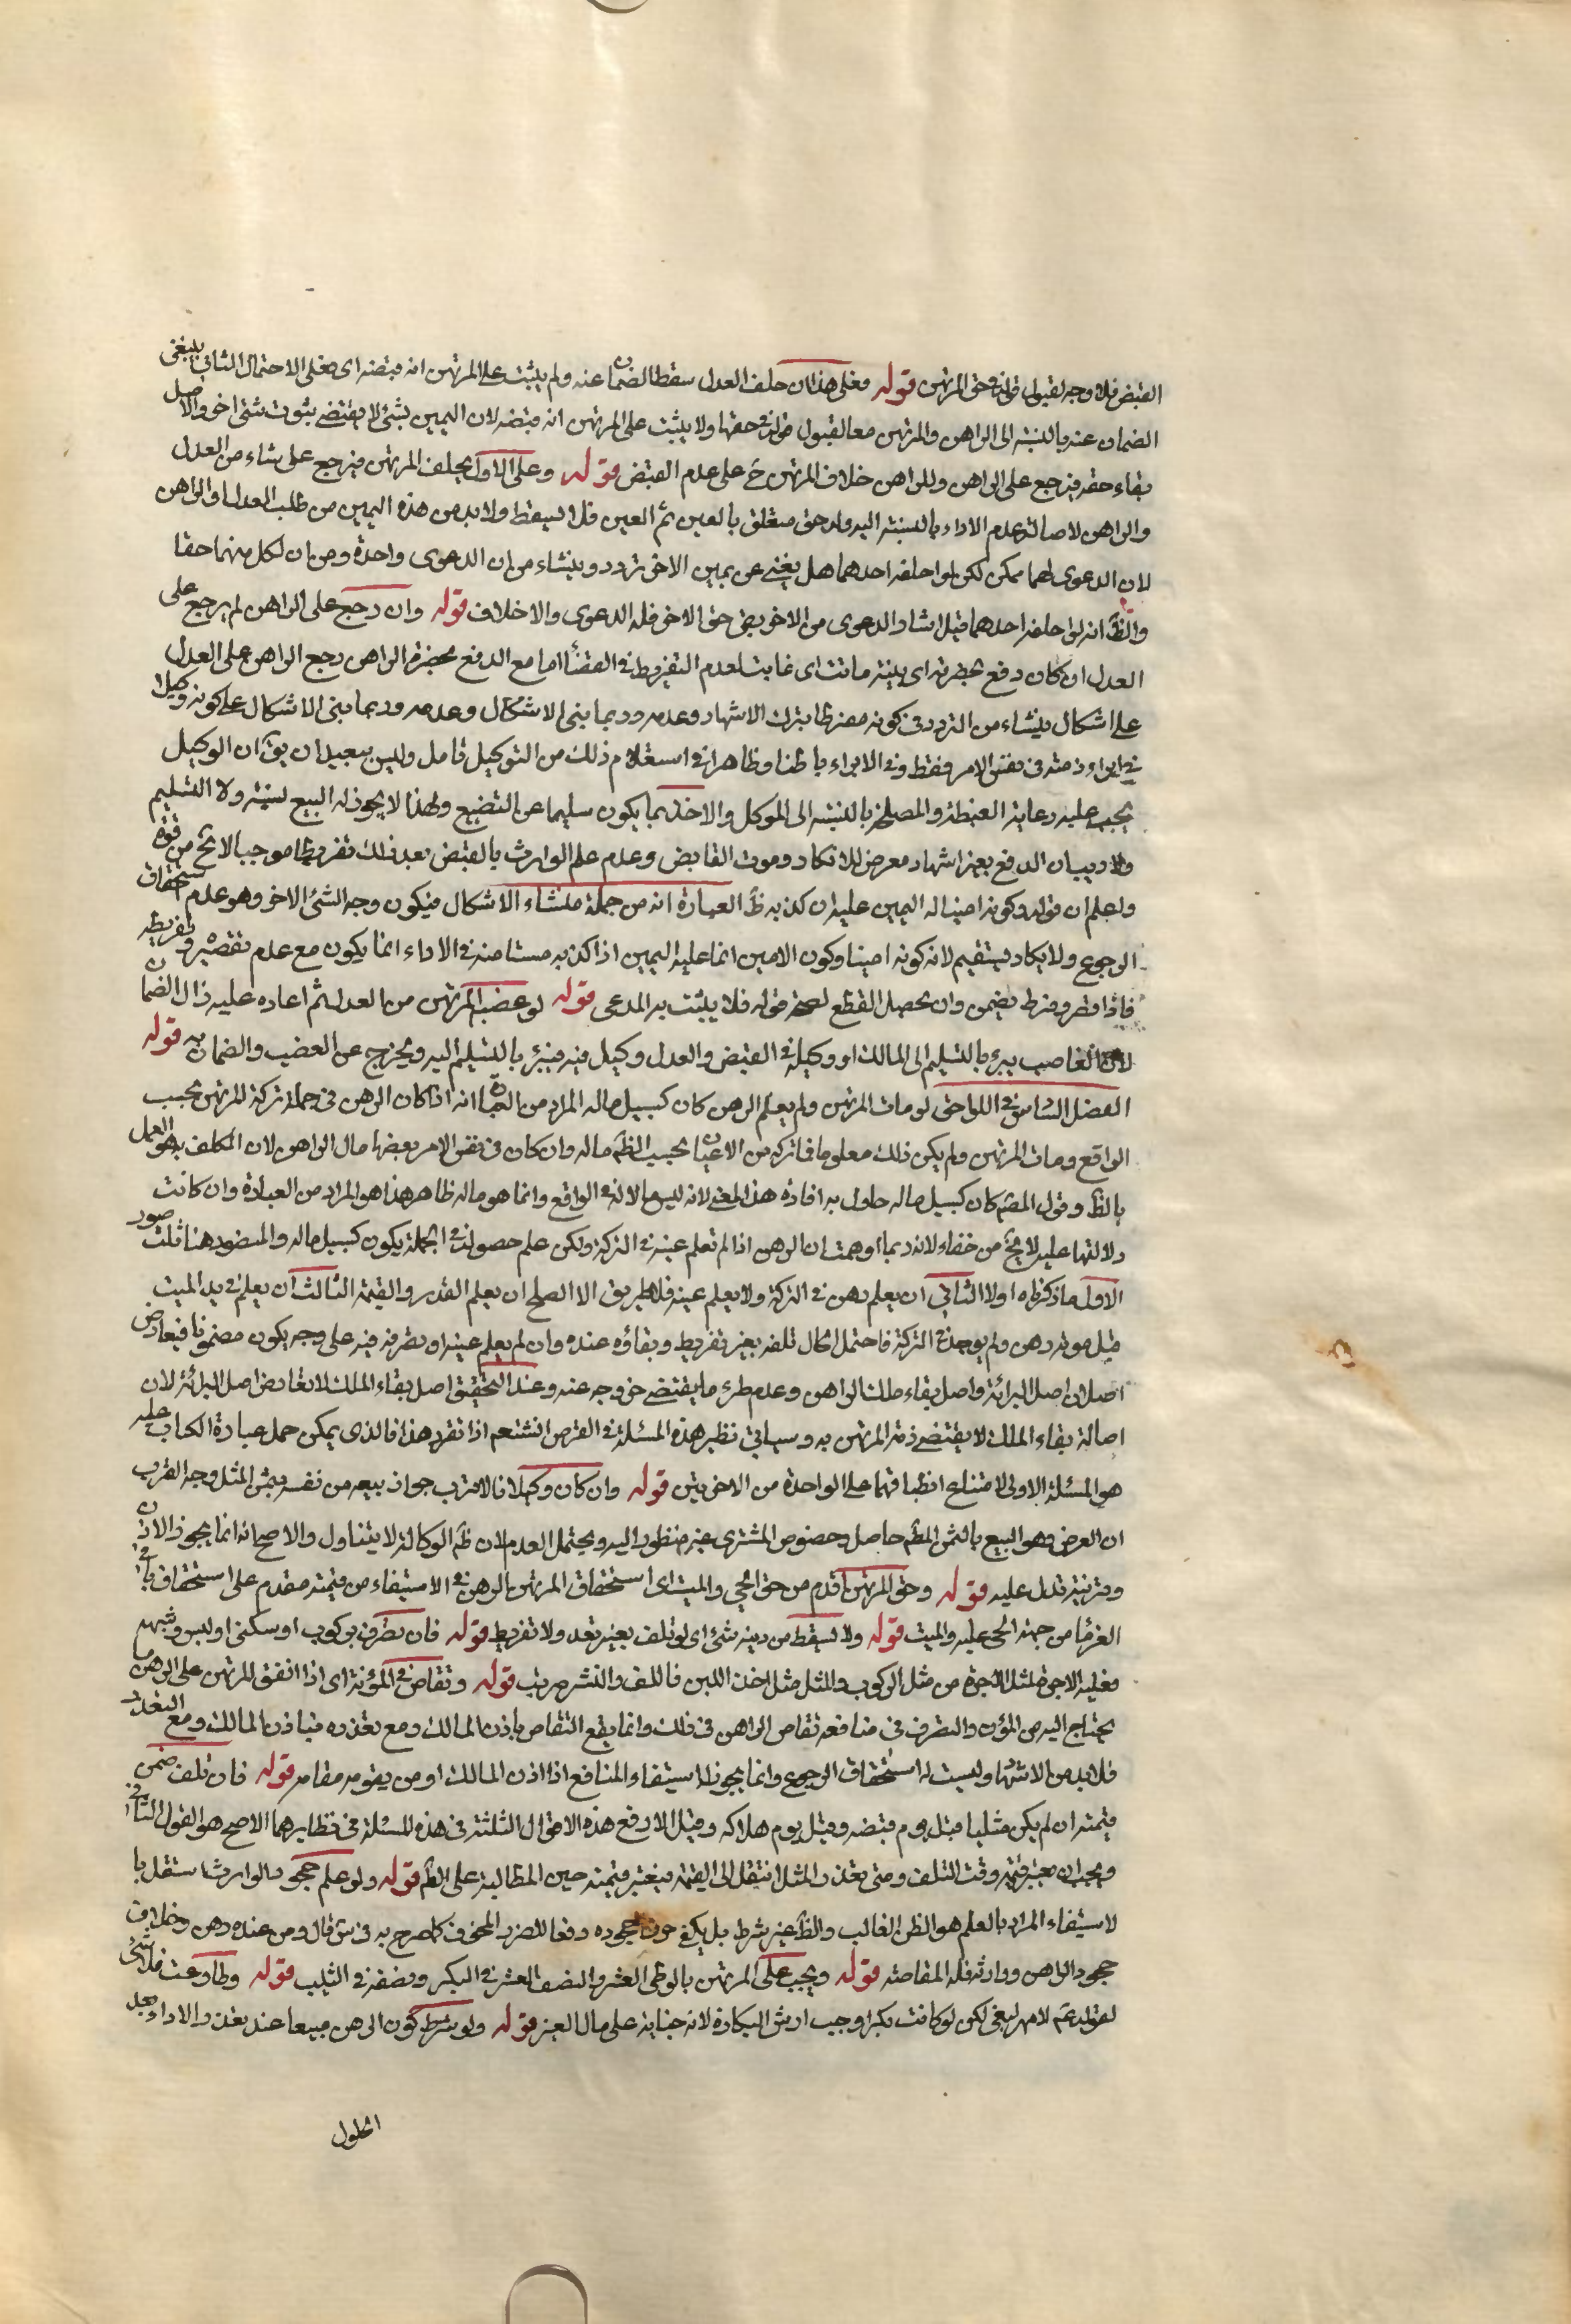 القبض فلا وجه لقبول قوله في حق المرتهن قوله فعلى هذا ان حلف العدل سقط الضمان عنه ولم يثبت على المرتهن انه قبضه اى فعلى الاحتمال الثاني ينبغى
الضمان عنه بالنسبة الى الراهن والمرتهن معا لقبول قوله في حقها ولا يثبت على المرتهن انه قبضه لان اليمين بشئ لا يقتضے ثبوت شئ اخر والاصل
بقاء حقه فيرجع على الراهن وللراهن خلاف المرتهن ح على عدم القبض قوله وعلى الاول يحلف المرتهن فيرجع على شاء من العدل
والراهن لاصالة عدم الاداء بالنسبة اليه وله حق متعلق بالعين ثم العين فلا يسقط ولا بد من هذه اليمين من طلب العدل او الراهن
لان الدعوى لهما ممكن لكن لو احلفه احدهما هل يغنے عن يمين الاخر تردد وينشاء من ان الدعوى واحدة ومن ان لكل منهما حقا
والظ انه لو احلفه احدهما قبل انشاء الدعوى من الاخر بقى حق الاخر فله الدعوى والاخلاف قوله وان رجع على الراهن لم يرجع على
العدل ان كان دفع بحضرته اى بينة ماتت اى غابت لعدم التفريط في القضا اما مع الدفع بحضرة الراهن رجع الراهن على العدل
على اشكال ينشاء من التردد في كونه مفرطا بترك الاشهاد وعدمه وربما بنى الاشكال وعدمه وربما بنى الاشكال على كونه وكيلا
في ابراء ذمته في نفس الامر فقط وفي الابراء باطنا وظاهرا في استعلام ذلك من التوكيل تامل وليس ببعيد ان يق ان الوكيل
يجب عليه رعاية الغبطة والمصلحة بالنسبة الى الموكل والاخذ بما يكون سليما عن التضييع ولهذا لا يجوز له البيع نسيئة ولا التسليم
ولا ريب ان الدفع بغير اشهاد معرض للانكار وموت القابض وعدم علم الوارث بالقبض بعد ذلك تفريطا موجبا لا يخ من قوة
واعلم ان قوله وكونه امينا له اليمين عليه ان كذبه ظ العبارة انه من جملة منشاء الاشكال فيكون وجه الشئ الاخر وهو عدم استحقاق
الرجوع ولا يكاد يستقيم لانه كونه امينا وكون الامين انما عليه اليمين اذا كذبه مستامنه في الاداء انما يكون مع عدم تقصيره وتفريطه
فاذا قصر وفرط يضمن وان يحصل القطع لصحة قوله فلا يثبت به المدعى قوله لو غصبه المرتهن من العدل ثم اعاده عليه زال الضمان
لان الغاصب يبرء بالتسليم الى المالك او وكيله في القبض والعدل وكيل فيه فيبرء بالتسليم اليه ويخرج عن الغصب والضمان به قوله
الفصل السادس في اللواحق لو مات المرتهن ولم يعلم الرهن كان كسبيل ماله المراد من العبارة انه اذا كان الرهن في جملة تركة المرتهن بحسب
الواقع ومات المرتهن ولم يكن ذلك معلوما فما تركه من الاعيان بحسب الظ ماله وان كان في نفس الامر بعضها مال الراهن لان المكلف به هو العمل
بالظ وقول المصنف كان كسبيل ماله حاول به افادة هذا المعنى لانه ليس مالا له في الواقع وانما هو ماله ظاهرا هذا هو المراد من العبارة وان كانت
دلالتها عليه لا يخ من خفاء لانه ربما اوهمت ان الرهن اذا لم تعلم عينه في التركة ولكن علم حصوله في الجملة يكون كسبيل ماله والمقصود هنا ثلث صور
الاول ما ذكرناه اولا الثاني ان يعلم رهن في التركة ولا يعلم عينه فلا طريق الا الصلح ان يعلم القدر والقيمة الثالث ان يعلم في يد الميت
قبل موته رهن ولم يوجد في التركة فاحتمل الحال تلفه بغير تفريط وبقاؤه عنده وان لم يعلم عينه او تصرفه فيه على وجه يكون مضمونا فيعارض
اصلان اصل البرائة واصل بقاء ملك الراهن وعدم طرء ما يقتضے خروجه عنه وعند التحقيق اصل بقاء الملك لا يعارض اصل البرائة لان
اصالة بقاء الملك لا يقتضے ذمة المرتهن به وسياتي نظير هذه المسئلة في القرض انشتعم اذا تقرر هذا فالذى يمكن حمل عبارة الكتاب عليه
هو المسئلة الاولى لامتناع انطباقها على الواحدة من الاخريتين قوله وان كان وكيلا فالاقرب جواز بيعه من نفسه بثمن المثل وجه القرب
ان الغرض وهو البيع بالثمن المظ حاصل وخصوص المشترى غير منظور اليه ويحتمل العدم لان ظ الوكالة لا يتناول والاصح انه انما يجوز الاذن
وقرينة تدل عليه قوله وحق المرتهن اقدم من حق الحي والميت اى استحقاق المرتهن الرهن في الاستيفاء من قيمته مقدم على استحقاق باقى
الغرما من جهة الحى عليه والميت قوله ولا يسقط من دينه شئ اى لو تلف بغير تعد ولا تفريط قوله فان تصرف بركوب او سكنى او لبس وشبهه
فعليه الاجرة المثل الاجرة من مثل الركوب والمثل مثل اخذ اللبن فاللف والنشر مرتب قوله وتقاص في المؤنة اى اذا انفق المرتهن على الرهن ما
يحتاج اليه من المؤن والتصرف في منافعه تقاص الراهن في ذلك وانما يقع التقاص باذن المالك ومع تعذره فباذن المالك ومع التعذر
فلا بد من الاشهاد وليست له استحقاق الرجوع وانما يجوز استيفاء المنافع اذا اذن المالك او من يقوم مقامه قوله فان تلف ضمن
قيمته ان لم يكن مثليا قبل يوم قبضه وقيل يوم هلاكه وقيل الارفع هذه الاقوال الثلثة في هذه المسئلة في نظايرهما الاصح هو القول الثاني
ويجب ان يعتبر قيمته وقت التلف ومتى تعذر المثل انتقل الى القيمة فيعتبر قيمته حين المطالبة على الظ قوله ولو علم جحود الوارث استقل با
لاستيفاء المراد بالعلم هو الظن الغالب والظ غير شرط بل يكفى خوف جحوده دفعا للضرر المخوف كما صرح به في س قال ومن عنده رهن وخاف
جحود الراهن ووارثه فله المقاصة قوله ويجب على المرتهن بالوطى العشر والنصف العشر في البكر ونصفه في الثيب قوله وطاوعت فلا شئ
لقوله ع لا مهر لبغى لكن لو كانت بكرا وجب ارش البكارة لانه جناية على مال الغير قوله ولو شرط كون الرهن مبيعا عند تعذر الاداء بعد
الحلول